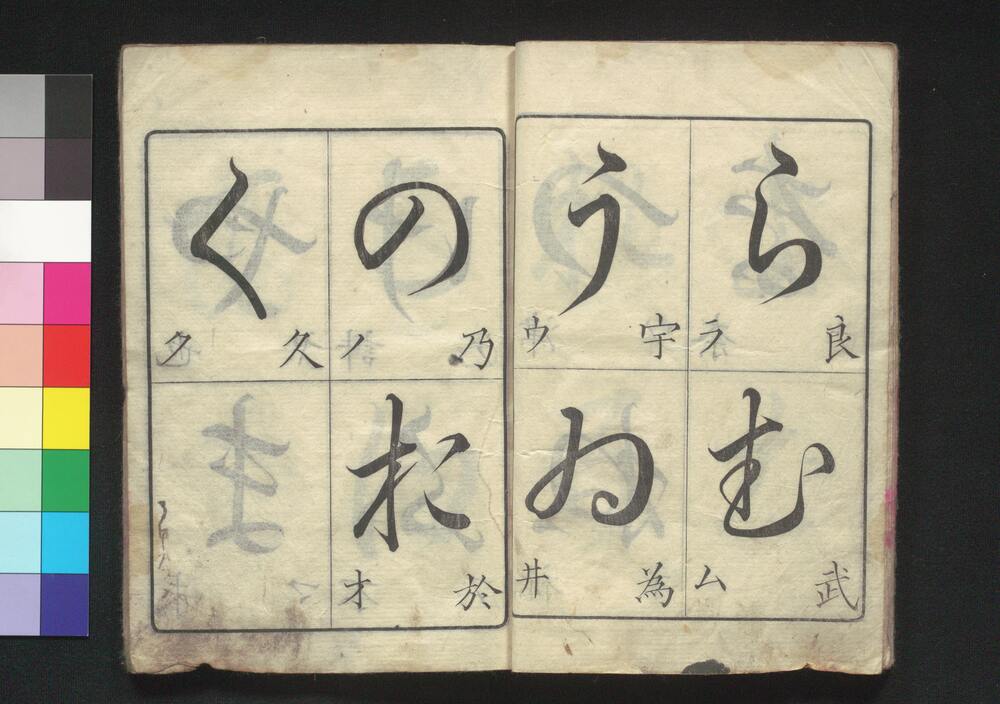 ら
良 ラ
む
武 ム
う
宇 ウ
ゐ
為 井
の
乃 ノ
お
於 オ
く
久 ク